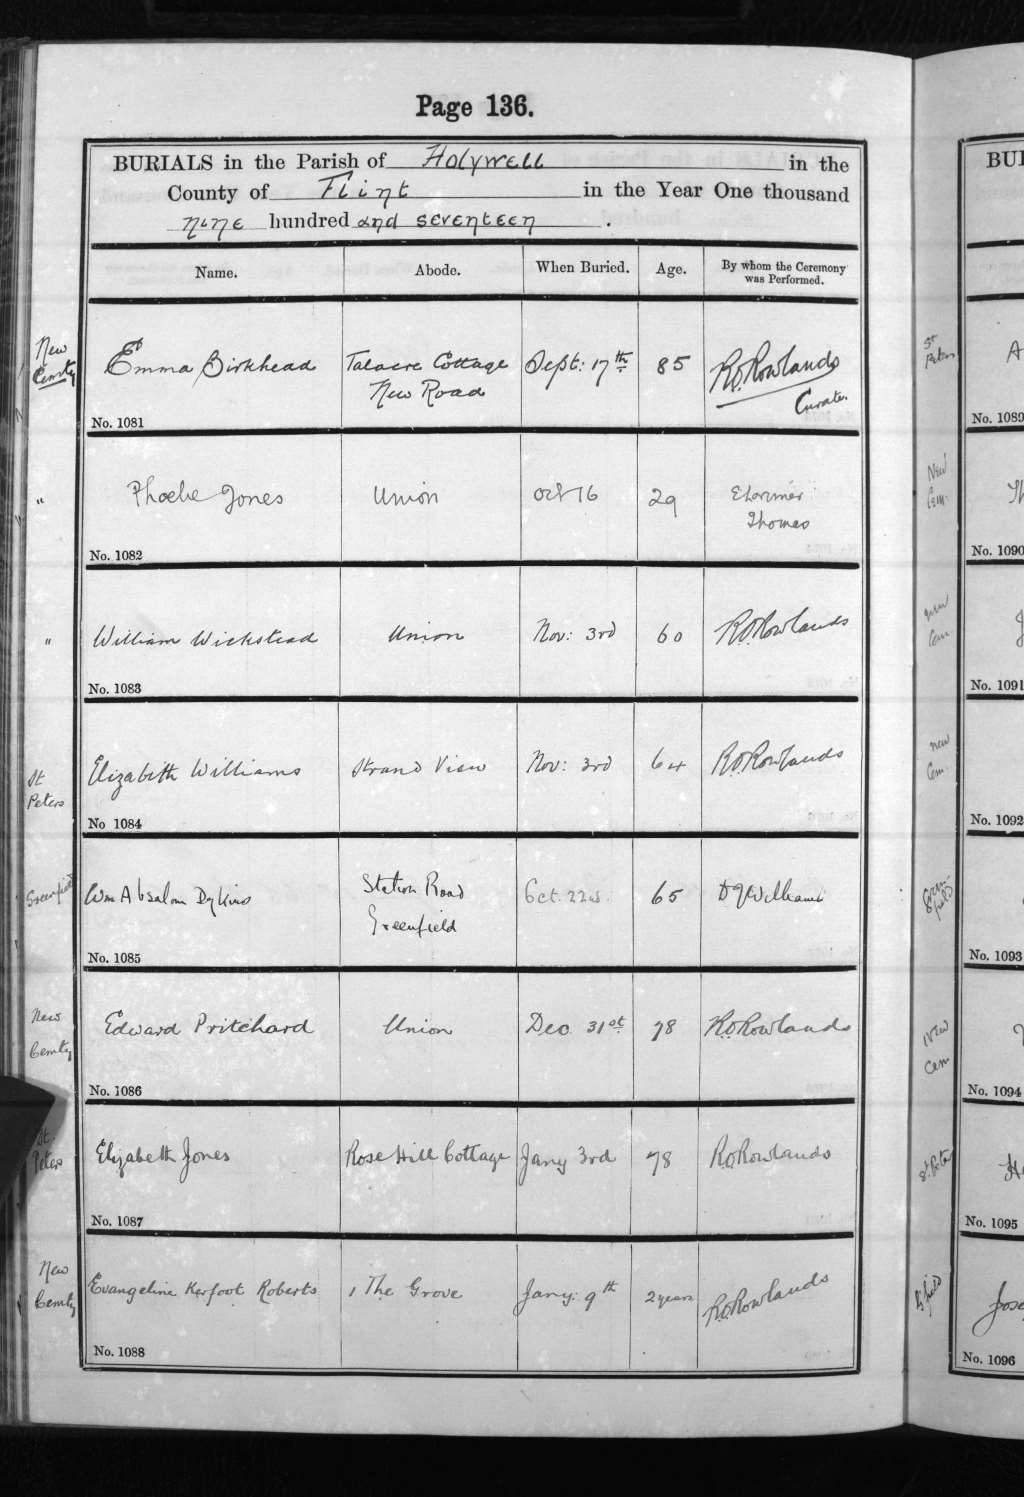 Page 136.
BURIALS in the Parish of Holywell in the
County of Flint in the Year One thousand
nine hundred and seventeen.
Name. Abode. When Buried. Age. By whom the Ceremony was Performed.
New
Cemty
Emma Birkhead Talacre Cottage Sept: 17th 85 R.O.Rowlands
New Road Curate.
No. 1081
" Phoebe Jones Union Oct 16 29 E Lorimer
Thomas
No. 1082
" William Wickstead Union Nov: 3rd 60 R.O.Rowlands
No. 1083
St
Peters
Elizabeth Williams Strand View Nov: 3rd 64 R.O.Rowlands
No 1084
Greenfield
Wm Absalom Dykins Station Road Oct. 22nd. 65 D J Williams
Greenfield
No. 1085
New
Cemty
Edward Pritchard Union Dec. 31st 78 R.O.Rowlands
No. 1086
St.
Peters
Elizabeth Jones Rose Hill Cottage Jany 3rd 78 R.O.Rowlands
No. 1087
New
Cemty
Evangeline Kerfoot Roberts 1 The Grove Jany: 9th 2 years R.O.Rowlands
No. 1088
BU
St
Peters
No. 1089
New
Cem.
No. 1090
new
Cem.
No. 1091
new
Cem.
No. 1092
Green-
field
No. 1093
New
Cem
No. 1094
St Peter
No. 1095
G'field
No. 1096